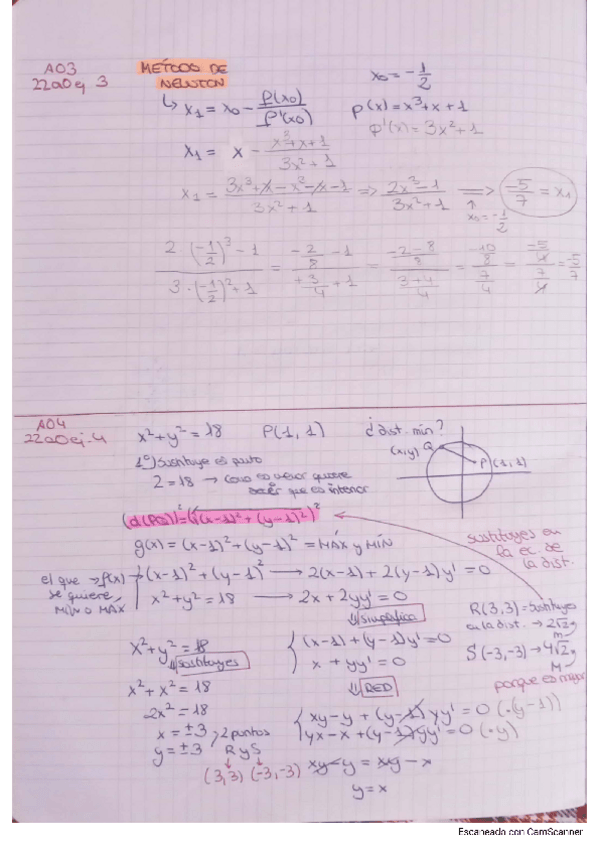 A03
22a0ej 3
MÉTODO DE
NEWTON
x0 = -1/2
↳ x1 = x0 - P(x0)/P'(x0)
p(x) = x³+x+1
p'(x) = 3x²+1
x1 = x - x³+x+1/3x²+1
x1 = 3x³+x-x³-x-1/3x²+1 => 2x³-1/3x²+1 => -5/7 = x1
x0 = -1/2
2·(-1/2)³-1/3·(-1/2)²+1 = -2/8 -1/+3/4 +1 = -2-8/8/3+4/4 = -10/8/7/4 = -5/4/7/4 = -5/7
A04
22a0ej.4
x²+y² = 18 P(1,1) ¿dist. mín?
(x,y) Q P(1,1)
1º) Sustituye es punto
2 = 18 → Como es menor quiere
decir que es interior
(d(PQ))² = (√(x-1)²+(y-1)²)²
g(x) = (x-1)²+(y-1)² = MÁX y MÍN
sustituyes en
la ec. de
la dist.
el que → f(x)
se quiere,
MÍN o MÁX
(x-1)²+(y-1)² → 2(x-1)+2(y-1)y' = 0
x²+y² = 18 → 2x+2yy' = 0
⇓ simplifica
R(3,3) = Sustituyes
en la dist. → 2√2 m
S(-3,-3) → 4√2 M
porque es mayor
x²+y² = 18
⇓ Sustituyes
(x-1)+(y-1)y' = 0
x + yy' = 0
⇓ RED
x²+x² = 18
2x² = 18
x = ±3
y = ±3
, 2 puntos
R y S
(3,3) (-3,-3)
xy-y+(y-1)yy' = 0 (·y)
yx-x+(y-1)yy' = 0 (·(y-1))
xy-y = xy-x
y = x
Escaneado con CamScanner